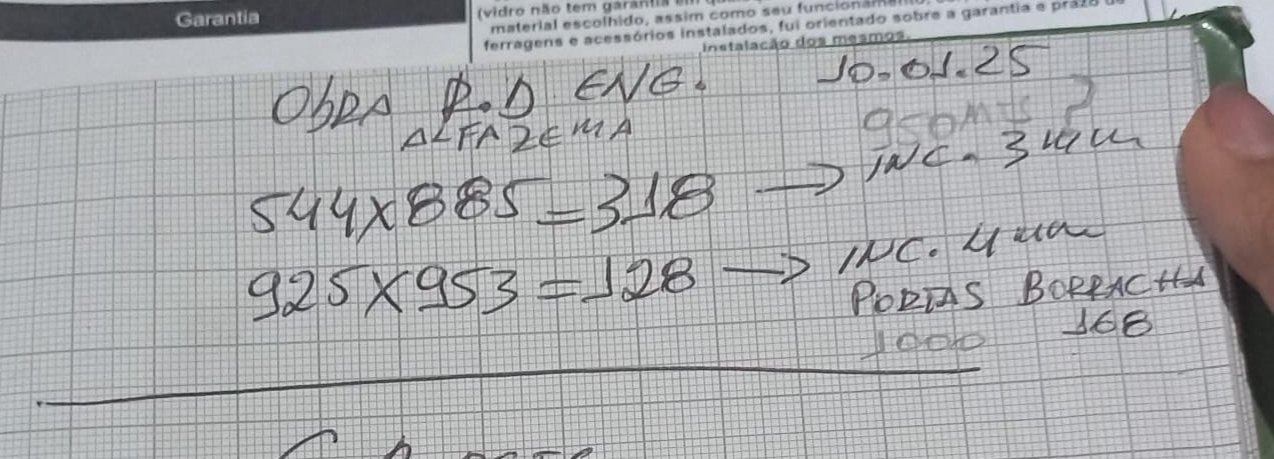 Garantia
(vidro não tem garantia em
material escolhido, assim como seu funcionamento,
ferragens e acessórios instalados, fui orientado sobre a garantia e prazo de
instalação dos mesmos.
ObRA R.D ENG. 10.01.25
ALFAZEMA 950mts ?
544x885=318 → INC. 3mm
925x953=128 → INC. 4mm
PORTAS BORRACHA
1000 168